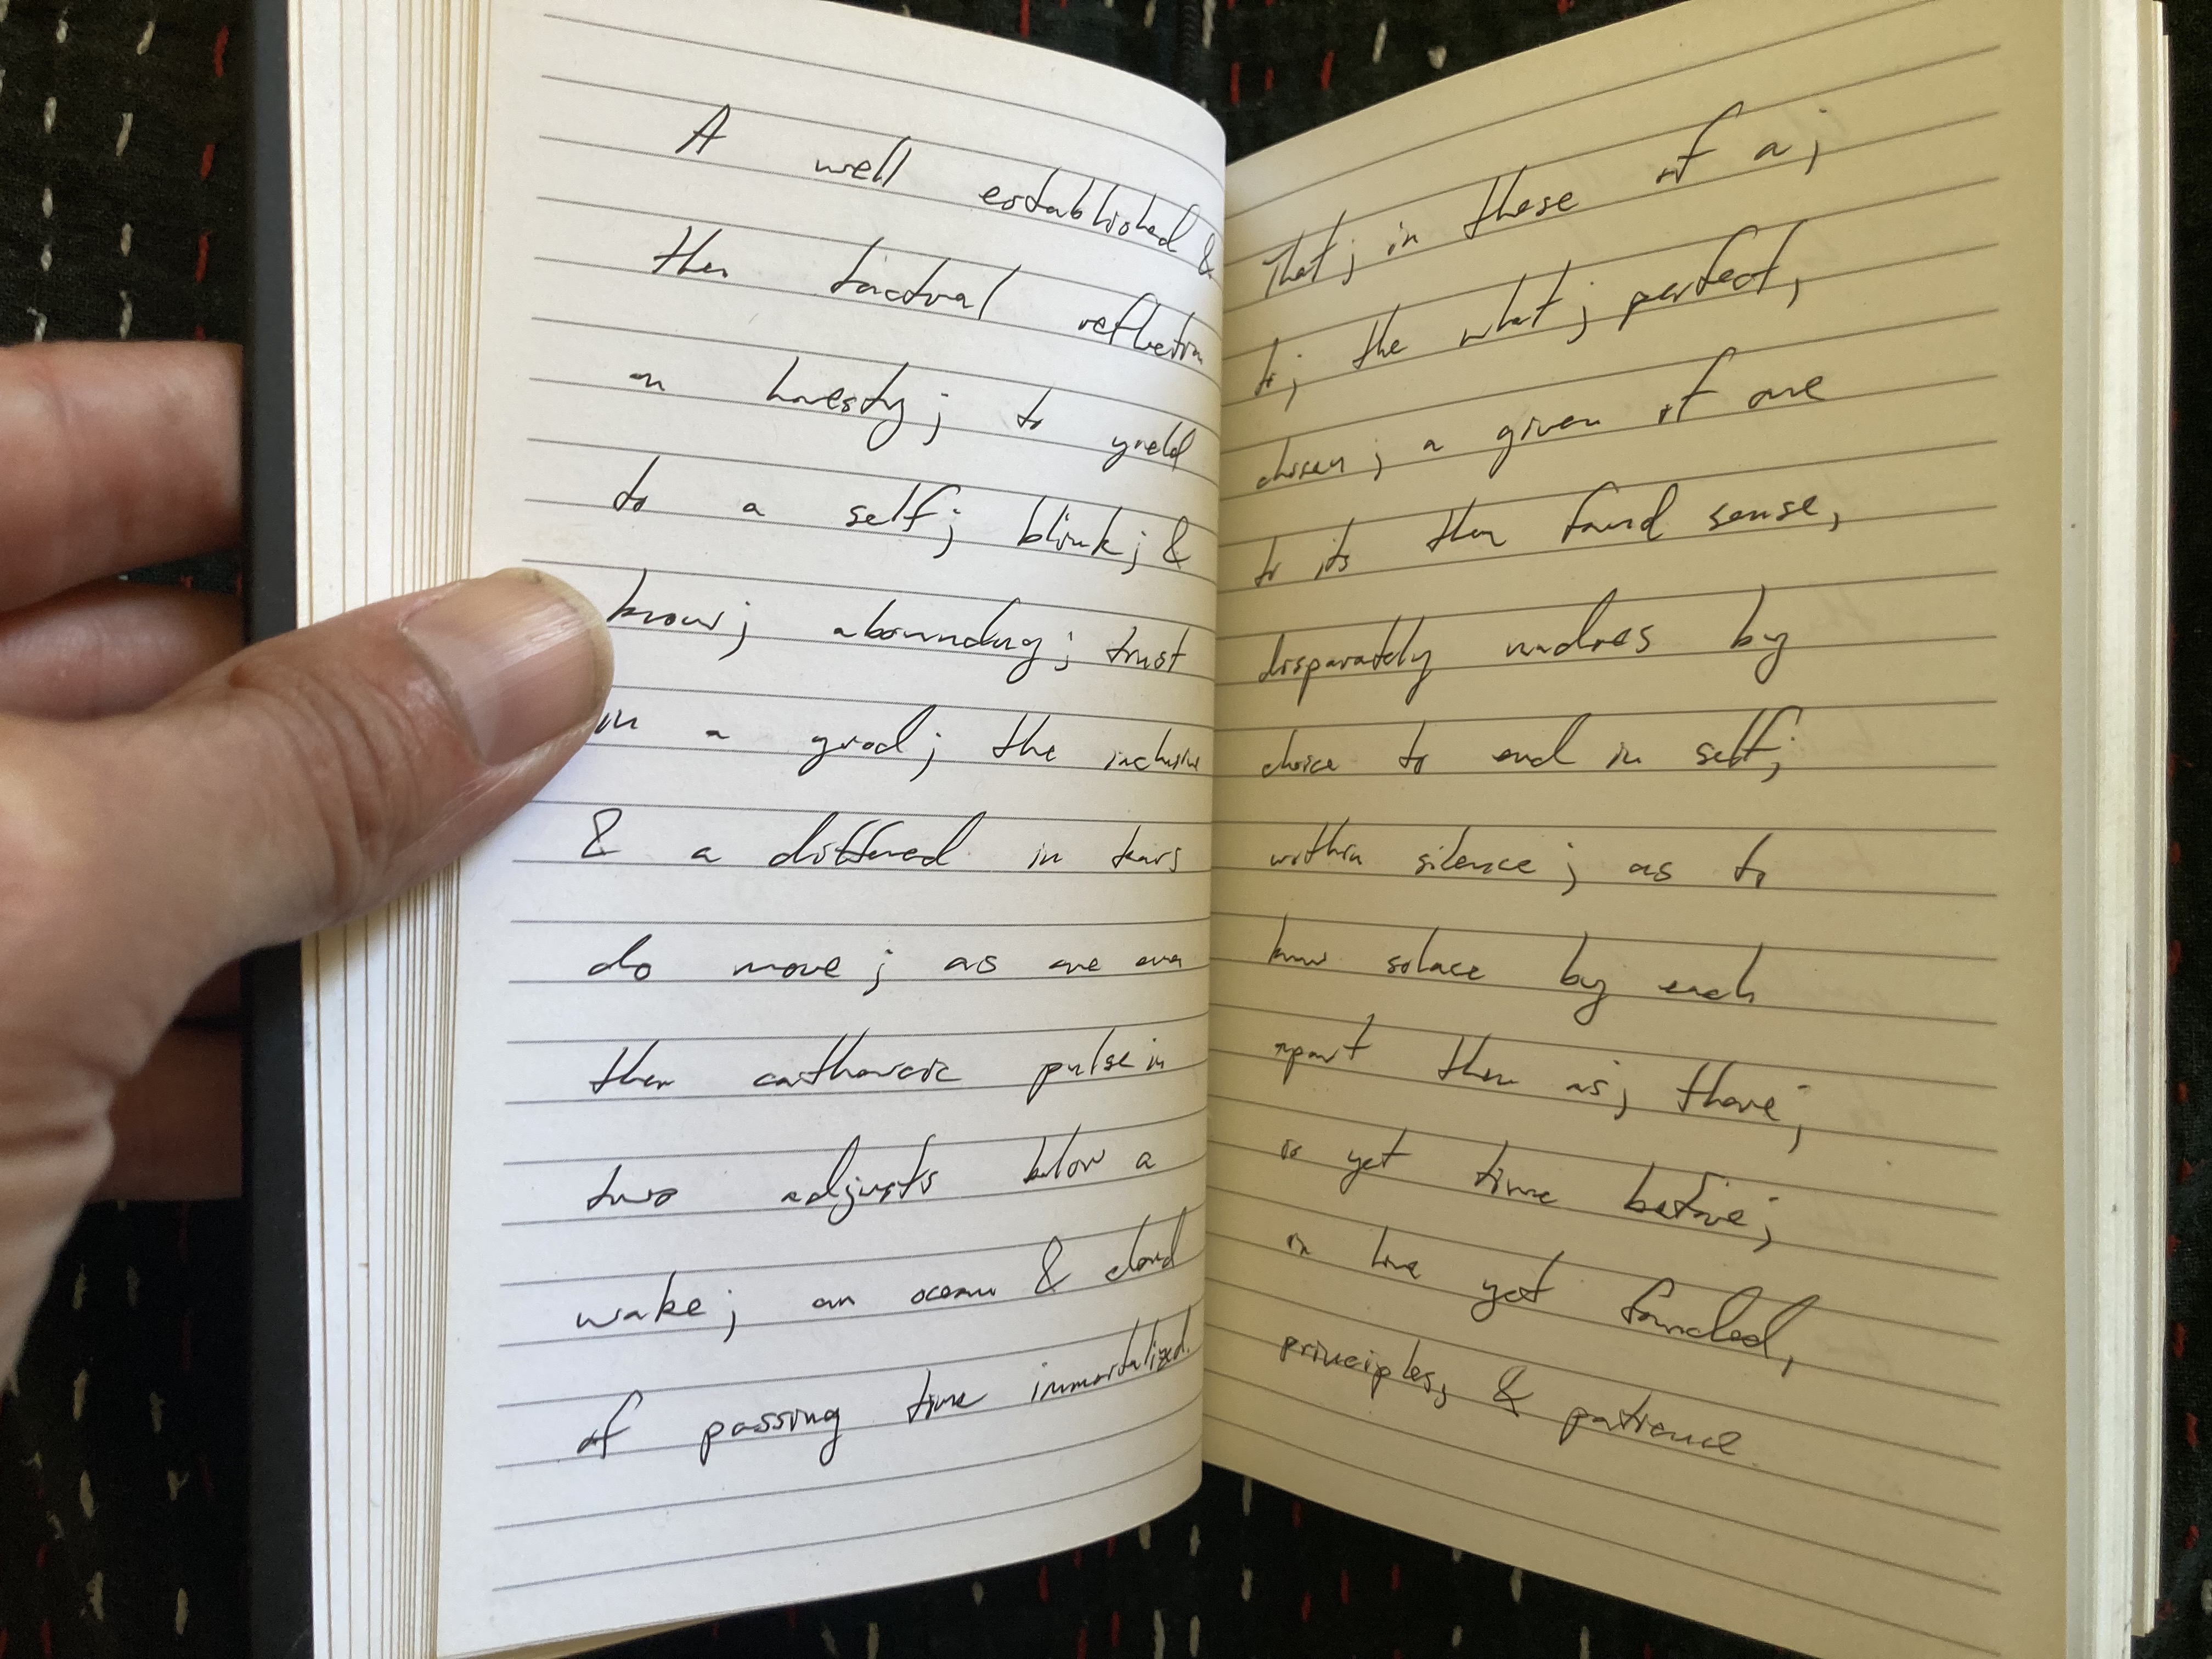 A well established &
then factual reflection
on honesty; to yield
to a self; blink; &
know; abounding; trust
in a good; the inclusive
& a differed in tears
do move; as one even
then catharsic pulse in
two adjusts below a
wake; an ocean & cloud
of passing time immortalized.
That; in these of a;
to; the what; perfect,
chosen; a given of one
to its then found sense,
disparately by
choice to end in self;
within silence; as to
know solace by each
apart then as; there;
is yet time before;
in love yet founded,
principles, & patience.